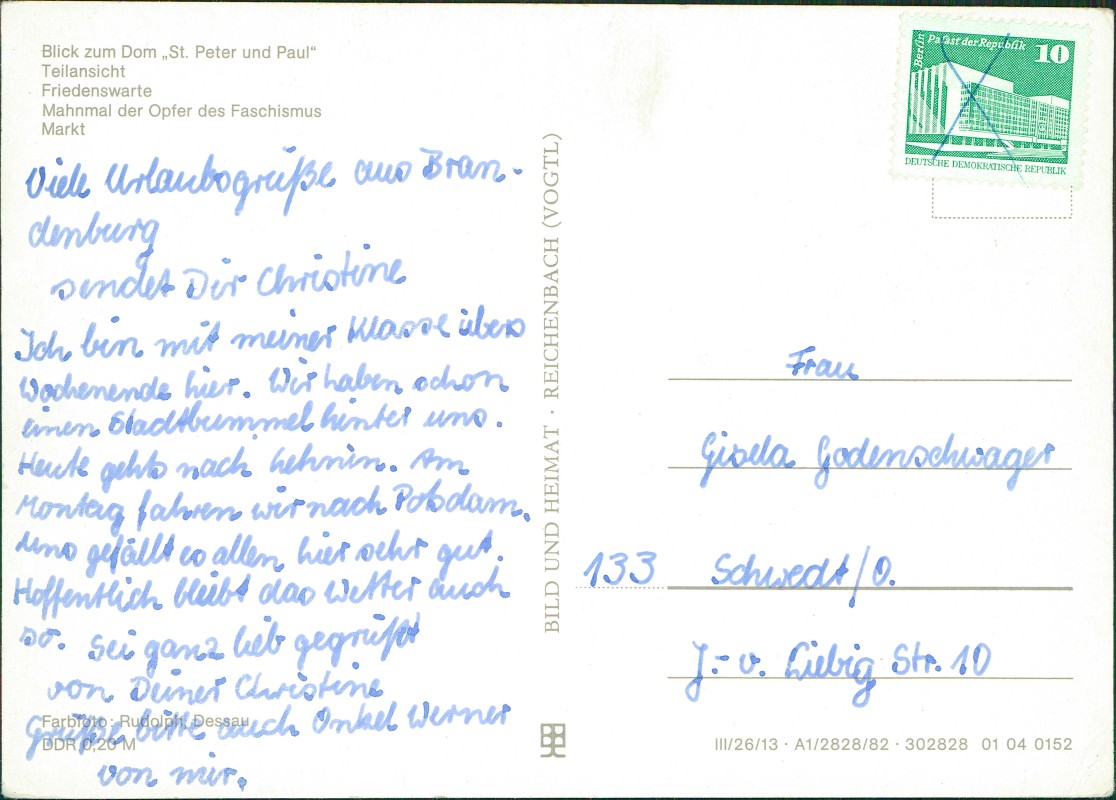 Blick zum Dom „St. Peter und Paul“
Teilansicht
Friedenswarte
Mahnmal der Opfer des Faschismus
Markt
Viele Urlaubsgrüße aus Bran-
denburg
sendet Dir Christine
Ich bin mit meiner Klasse übers
Wochenende hier. Wir haben schon
einen Stadtbummel hinter uns.
Heute gehts nach Lehnin. Am
Montag fahren wir nach Potsdam.
Uns gefällt es allen hier sehr gut.
Hoffentlich bleibt das Wetter auch
so. Sei ganz lieb gegrüßt
von Deiner Christine
Grüße bitte auch Onkel Werner
von mir.
Farbfoto: Rudolph, Dessau
DDR 0,20 M
BILD UND HEIMAT · REICHENBACH (VOGTL)
Berlin
Palast der Republik
10
DEUTSCHE DEMOKRATISCHE REPUBLIK
Frau
Gisela Godenschwager
133 Schwedt/O.
J.-v. Liebig Str. 10
III/26/13 · A1/2828/82 · 302828 01 04 0152